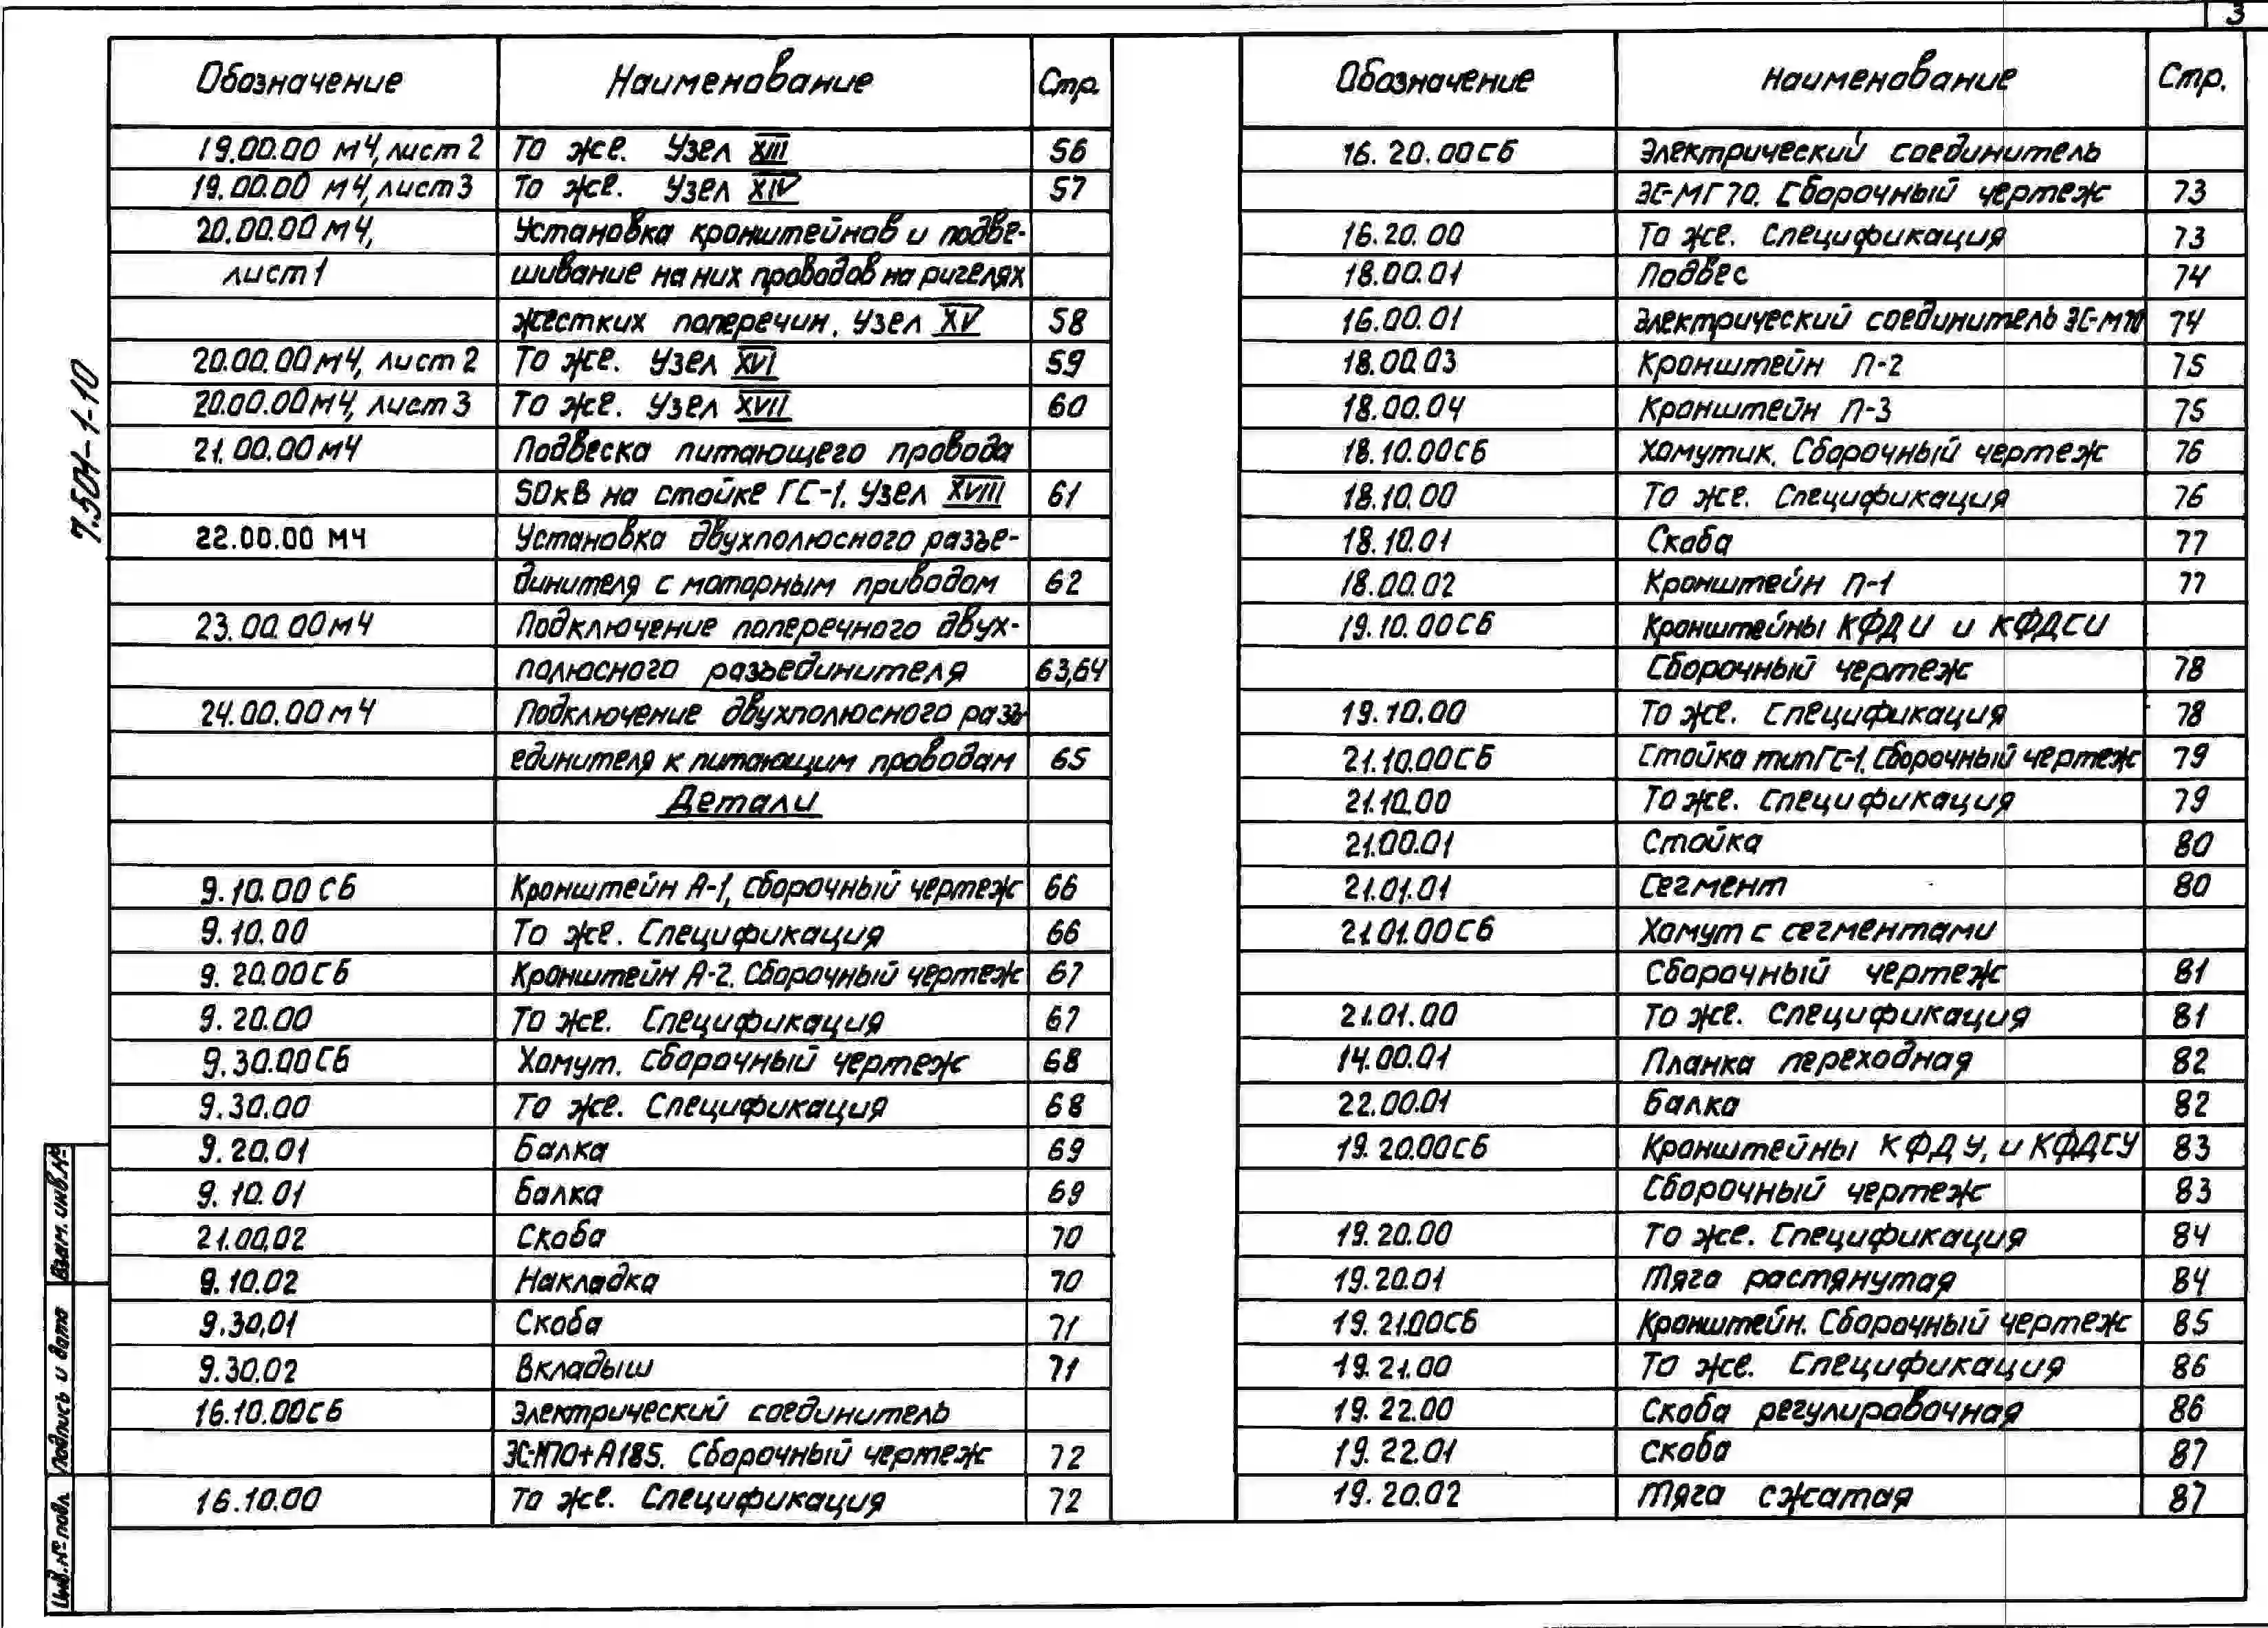 3
7.501-1-10
Обозначение Наименование Стр.
19.00.00 МЧ, лист 2 То же. Узел XIII 56
19.00.00 МЧ, лист 3 То же. Узел XIV 57
20.00.00 МЧ, Установка кронштейнов и подве-
лист 1 шивание на них проводов на ригелях
жестких поперечин. Узел XV 58
20.00.00 МЧ, лист 2 То же. Узел XVI 59
20.00.00 МЧ, лист 3 То же. Узел XVII 60
21.00.00 МЧ Подвеска питающего провода
50кВ на стойке ГС-1. Узел XVIII 61
22.00.00 МЧ Установка двухполюсного разъе-
динителя с моторным приводом 62
23.00.00 МЧ Подключение поперечного двух-
полюсного разъединителя 63,64
24.00.00 МЧ Подключение двухполюсного разъ-
единителя к питающим проводам 65
Детали
9.10.00 СБ Кронштейн А-1, Сборочный чертеж 66
9.10.00 То же. Спецификация 66
9.20.00 СБ Кронштейн А-2. Сборочный чертеж 67
9.20.00 То же. Спецификация 67
9.30.00 СБ Хомут. Сборочный чертеж 68
9.30.00 То же. Спецификация 68
9.20.01 Балка 69
9.10.01 Балка 69
21.00.02 Скоба 70
9.10.02 Накладка 70
9.30.01 Скоба 71
9.30.02 Вкладыш 71
16.10.00 СБ Электрический соединитель
ЭС-М70+А185. Сборочный чертеж 72
16.10.00 То же. Спецификация 72
Обозначение Наименование Стр.
16.20.00 СБ Электрический соединитель
ЭС-МГ70. Сборочный чертеж 73
16.20.00 То же. Спецификация 73
18.00.01 Подвес 74
16.00.01 Электрический соединитель ЭС-М70 74
18.00.03 Кронштейн П-2 75
18.00.04 Кронштейн П-3 75
18.10.00 СБ Хомутик. Сборочный чертеж 76
18.10.00 То же. Спецификация 76
18.10.01 Скоба 77
18.00.02 Кронштейн П-1 77
19.10.00 СБ Кронштейны КФДИ и КФДСИ
Сборочный чертеж 78
19.10.00 То же. Спецификация 78
21.10.00 СБ Стойка тип ГС-1. Сборочный чертеж 79
21.10.00 То же. Спецификация 79
21.00.01 Стойка 80
21.01.01 Сегмент 80
21.01.00 СБ Хомут с сегментами
Сборочный чертеж 81
21.01.00 То же. Спецификация 81
14.00.01 Планка переходная 82
22.00.01 Балка 82
19.20.00 СБ Кронштейны КФДУ, и КФДСУ 83
Сборочный чертеж 83
19.20.00 То же. Спецификация 84
19.20.01 Тяга растянутая 84
19.21.00 СБ Кронштейн. Сборочный чертеж 85
19.21.00 То же. Спецификация 86
19.22.00 Скоба регулировочная 86
19.22.01 Скоба 87
19.20.02 Тяга сжатая 87
Взам. инв.№
Подпись и дата
Инв.№ подл.